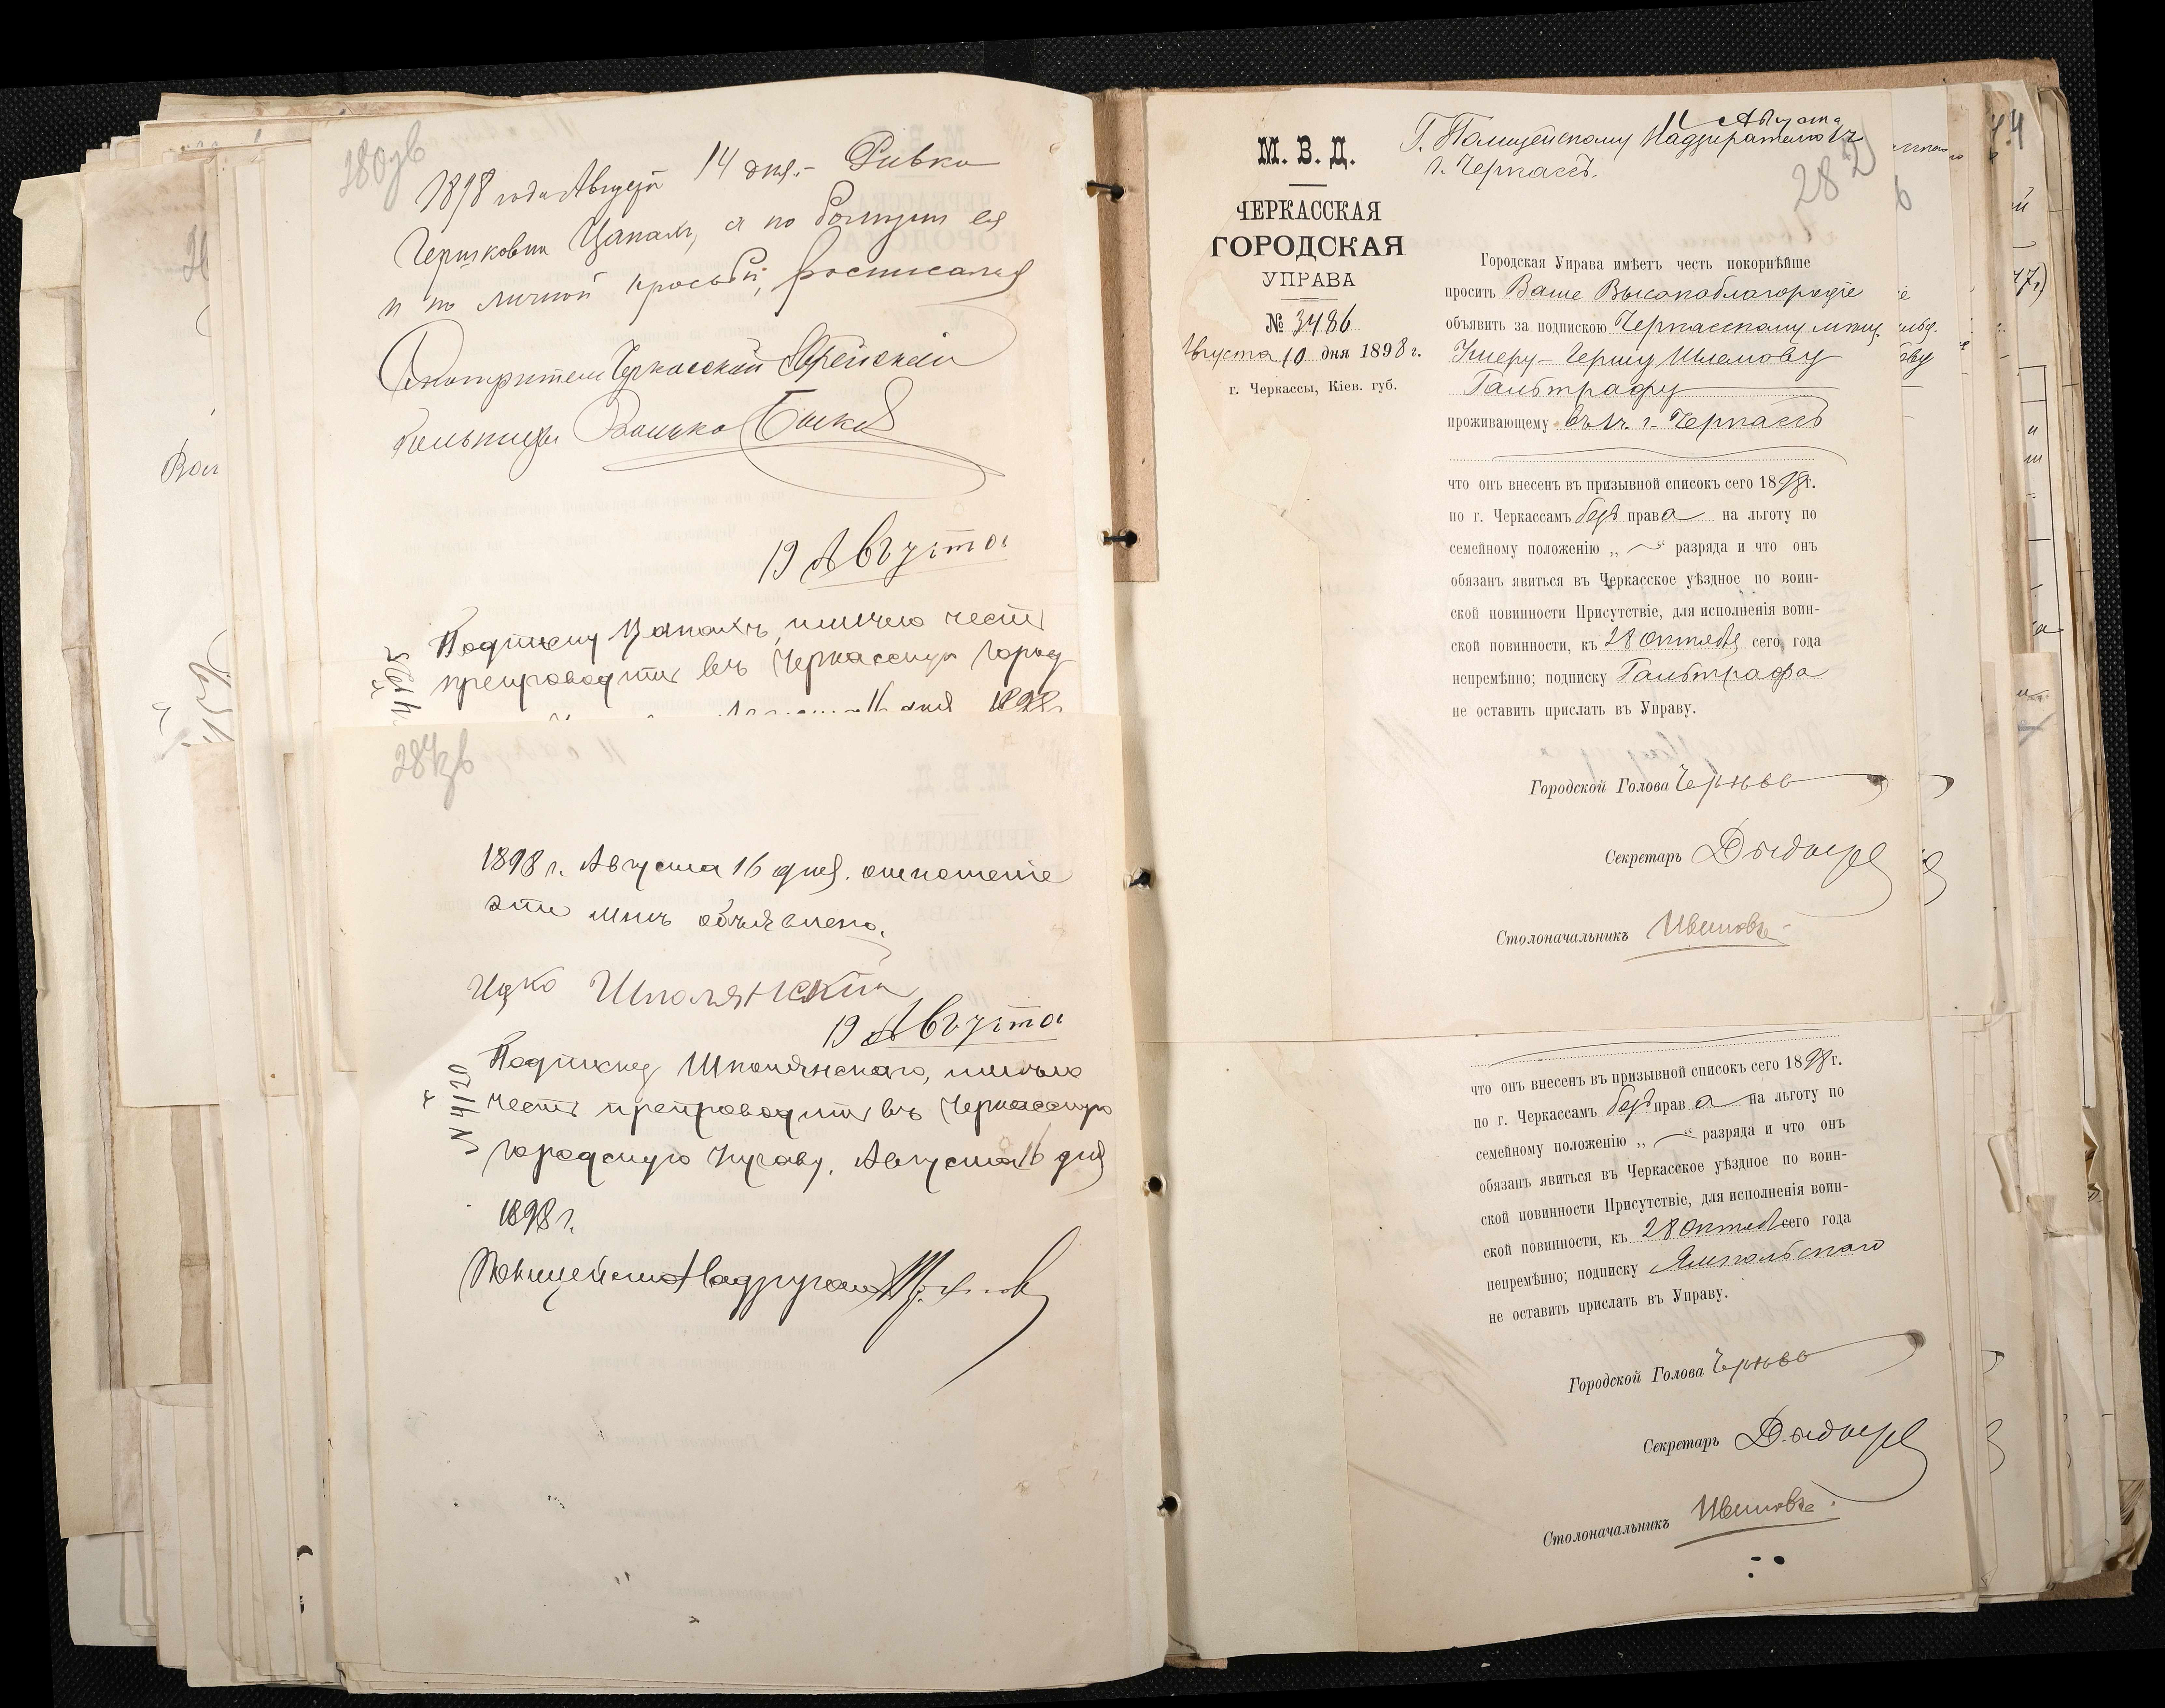 280об
1898 года Августа 14 дня.- Ривка
Гершковна Цапакъ, а по болезни ея
и по личной просьбѣ, росписался
Смотритель Черкасской Еврейской
больницы
19 Августа
Подписку Цапакъ, имѣю честь
препроводить въ Черкасскую город
Августа 16 дня 1898 г.
1898 г. Августа 16 дня. отношеніе
это мнѣ объявлено.
Ицко Шполянскій
19 Августа
№ 4120
Подписку Шполянскаго, имѣю
честь препроводить въ Черкасскую
городскую Управу. Августа 16 дня
1898 г.
Полицейскій Надзиратель
М. В. Д.
ЧЕРКАССКАЯ
ГОРОДСКАЯ
УПРАВА
№ 3486
Августа 10 дня 1898 г.
г. Черкассы, Кіев. губ.
11 Августа
Г. Полицейскому Надзирателю 1 ч
г. Черкассъ.
282
Городская Управа имѣетъ честь покорнѣйше
просить Ваше Высокоблагородіе
объявить за подпискою Черкасскому мѣщ.
Умеру-Гершу Шлемову
Гальтрафу
проживающему въ 1 ч. г. Черкассъ
что онъ внесенъ въ призывной списокъ сего 1898 г.
по г. Черкассамъ безъ права на льготу по
семейному положенію „ — “ разряда и что онъ
обязанъ явиться въ Черкасское уѣздное по воин-
ской повинности Присутствіе, для исполненія воин-
ской повинности, къ 28 Октября сего года
непремѣнно; подписку Гальтрафа
не оставить прислать въ Управу.
Городской Голова
Секретарь
Столоначальникъ
что онъ внесенъ въ призывной списокъ сего 1898 г.
по г. Черкассамъ безъ права на льготу по
семейному положенію „ — “ разряда и что онъ
обязанъ явиться въ Черкасское уѣздное по воин-
ской повинности Присутствіе, для исполненія воин-
ской повинности, къ 28 Октября сего года
непремѣнно; подписку Ямпольскаго
не оставить прислать въ Управу.
Городской Голова
Секретарь
Столоначальникъ